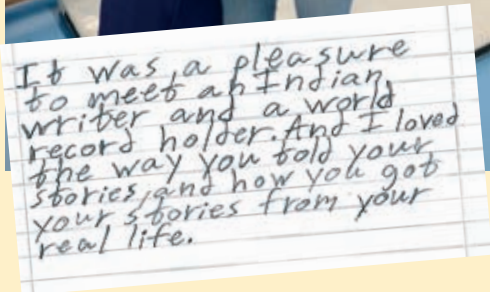 It was a pleasure
to meet an Indian
writer and a world
record holder. And I loved
the way you told your
stories, and how you got
your stories from your
real life.